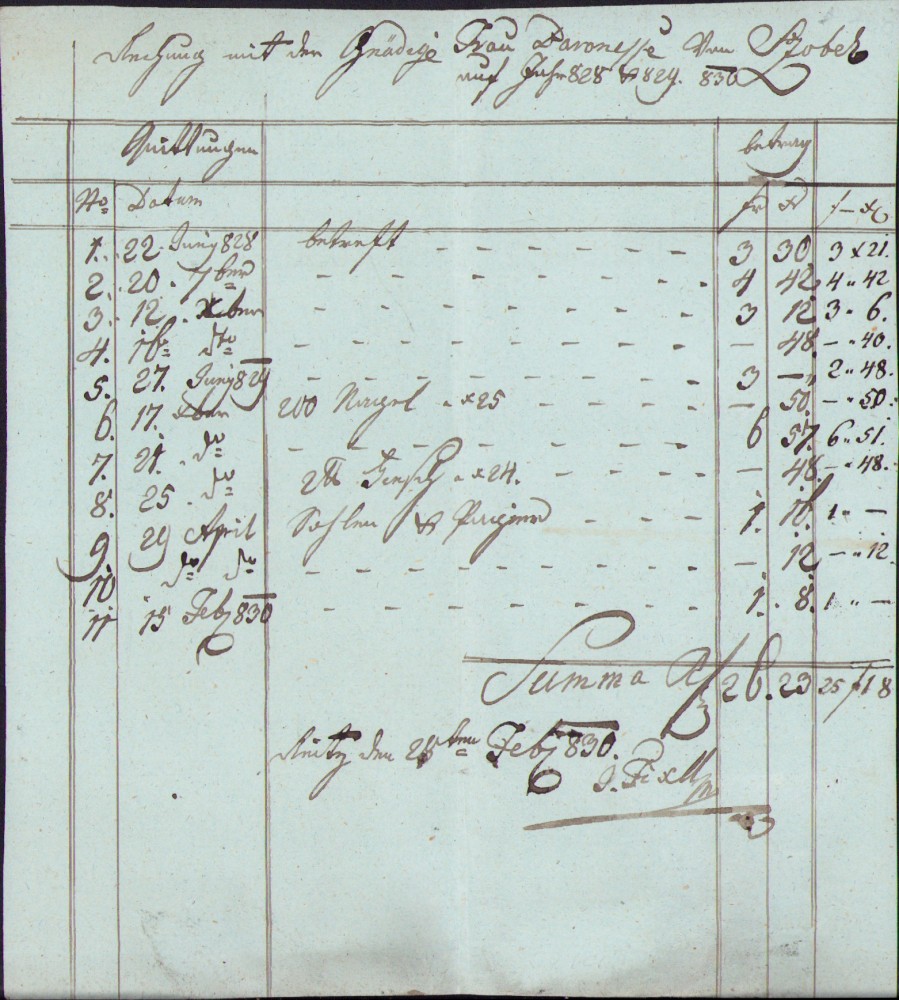 Rechnung mit der Gnädige Frau Baronesse Von Zobel
auf Jahr 828 & 829. 830
Quittungen betrag
No Datum fr x f – x
1. 22. Juny 828 betreft – – – – – – 3 30 3 x 21.
2. 20. 7ber – – – – – – – – – 4 42 4 " 42
3. 12. Xber – – – – – – – – – 3 12 3 " 6.
4. 16 do – – – – – – – – – – 48 – " 40.
5. 27. Juny 829 – – – – – – – – – 3 – 2 " 48.
6. 17. 200 Nagel a x 25 – – – – – 50. – " 50.
7. 21. do – – – – – – – – – 6 57. 6 " 51.
8. 25. do 2 ℔ a x 24. – – – – 48. – " 48.
9 29 April Sohlen & – – – 1. 16. 1 " –
10 do do – – – – – – – – – – 12 – " 12.
11 15 Feb 830 – – – – – – – – 1. 8. 1 " –
Summa 26. 23 25 f 18
den 28ten Feb 830.